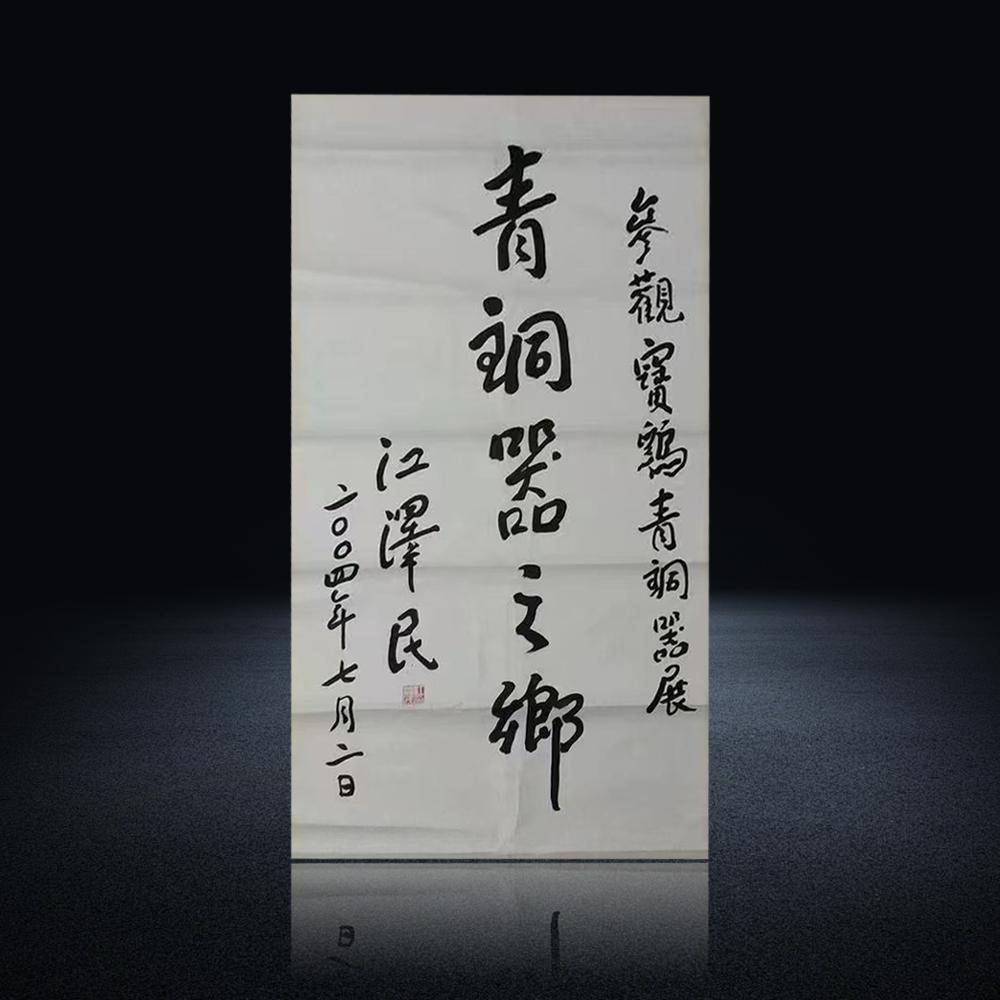 參觀寶鷄青銅器展
青銅器之鄉
江澤民
二〇〇四年七月二日